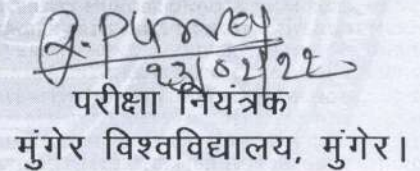 23/02/22
परीक्षा नियंत्रक
मुंगेर विश्वविद्यालय, मुंगेर।